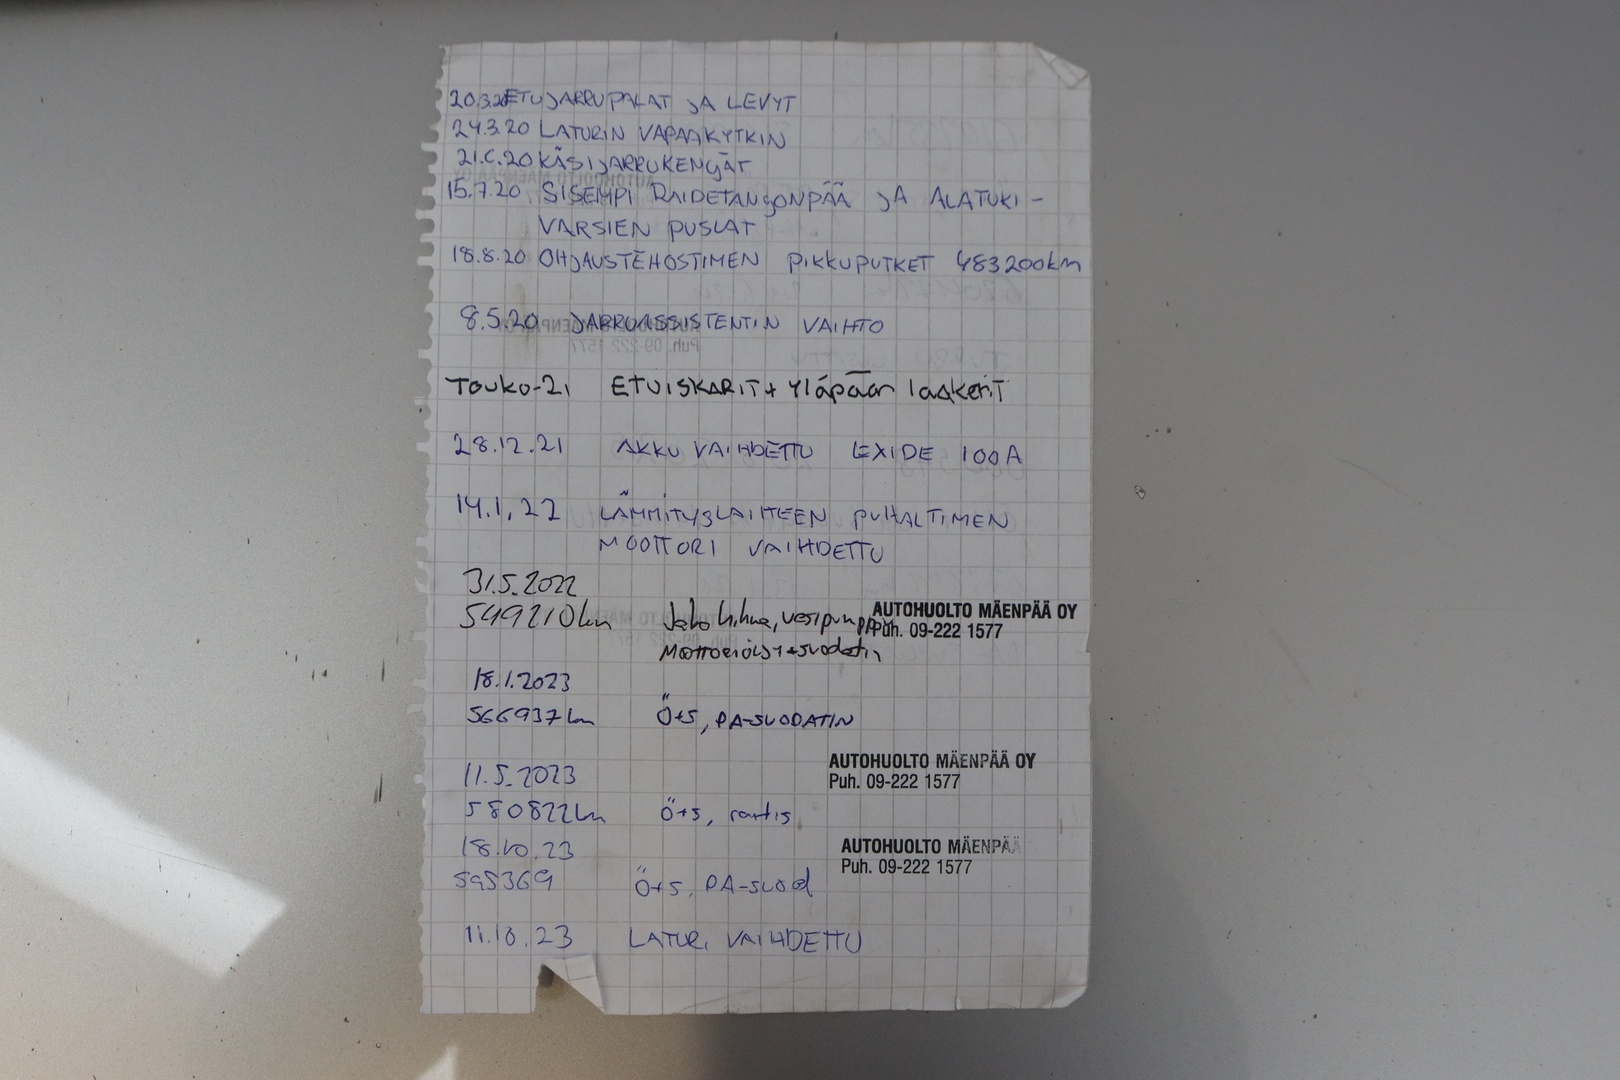 20.3.20 ETUJARRUPALAT JA LEVYT
24.3.20 LATURIN VAPAAKYTKIN
21.6.20 KÄSIJARRUKENGÄT
15.7.20 SISEMPI RAIDETANGONPÄÄ JA ALATUKI-
VARSIEN PUSLAT
18.8.20 OHJAUSTEHOSTIMEN PIKKUPUTKET 483200km
8.5.20 JARRUASSISTENTIN VAIHTO
TOUKO-21 ETUISKARIT + Yläpään laakerit
28.12.21 AKKU VAIHDETTU EXIDE 100A
14.1.22 LÄMMITYSLAITTEEN PUHALTIMEN
MOOTTORI VAIHDETTU
31.5.2022
549210km Jakohihna, vesipumppu AUTOHUOLTO MÄENPÄÄ OY
Puh. 09-222 1577
Moottoriöljy+suodatin
18.1.2023
566937km Ö+S, PA-SUODATIN
AUTOHUOLTO MÄENPÄÄ OY
11.5.2023 Puh. 09-222 1577
580822km Ö+S, raitis
18.10.23 AUTOHUOLTO MÄENPÄÄ
Puh. 09-222 1577
595369 Ö+S, PA-suod
11.10.23 LATURI VAIHDETTU